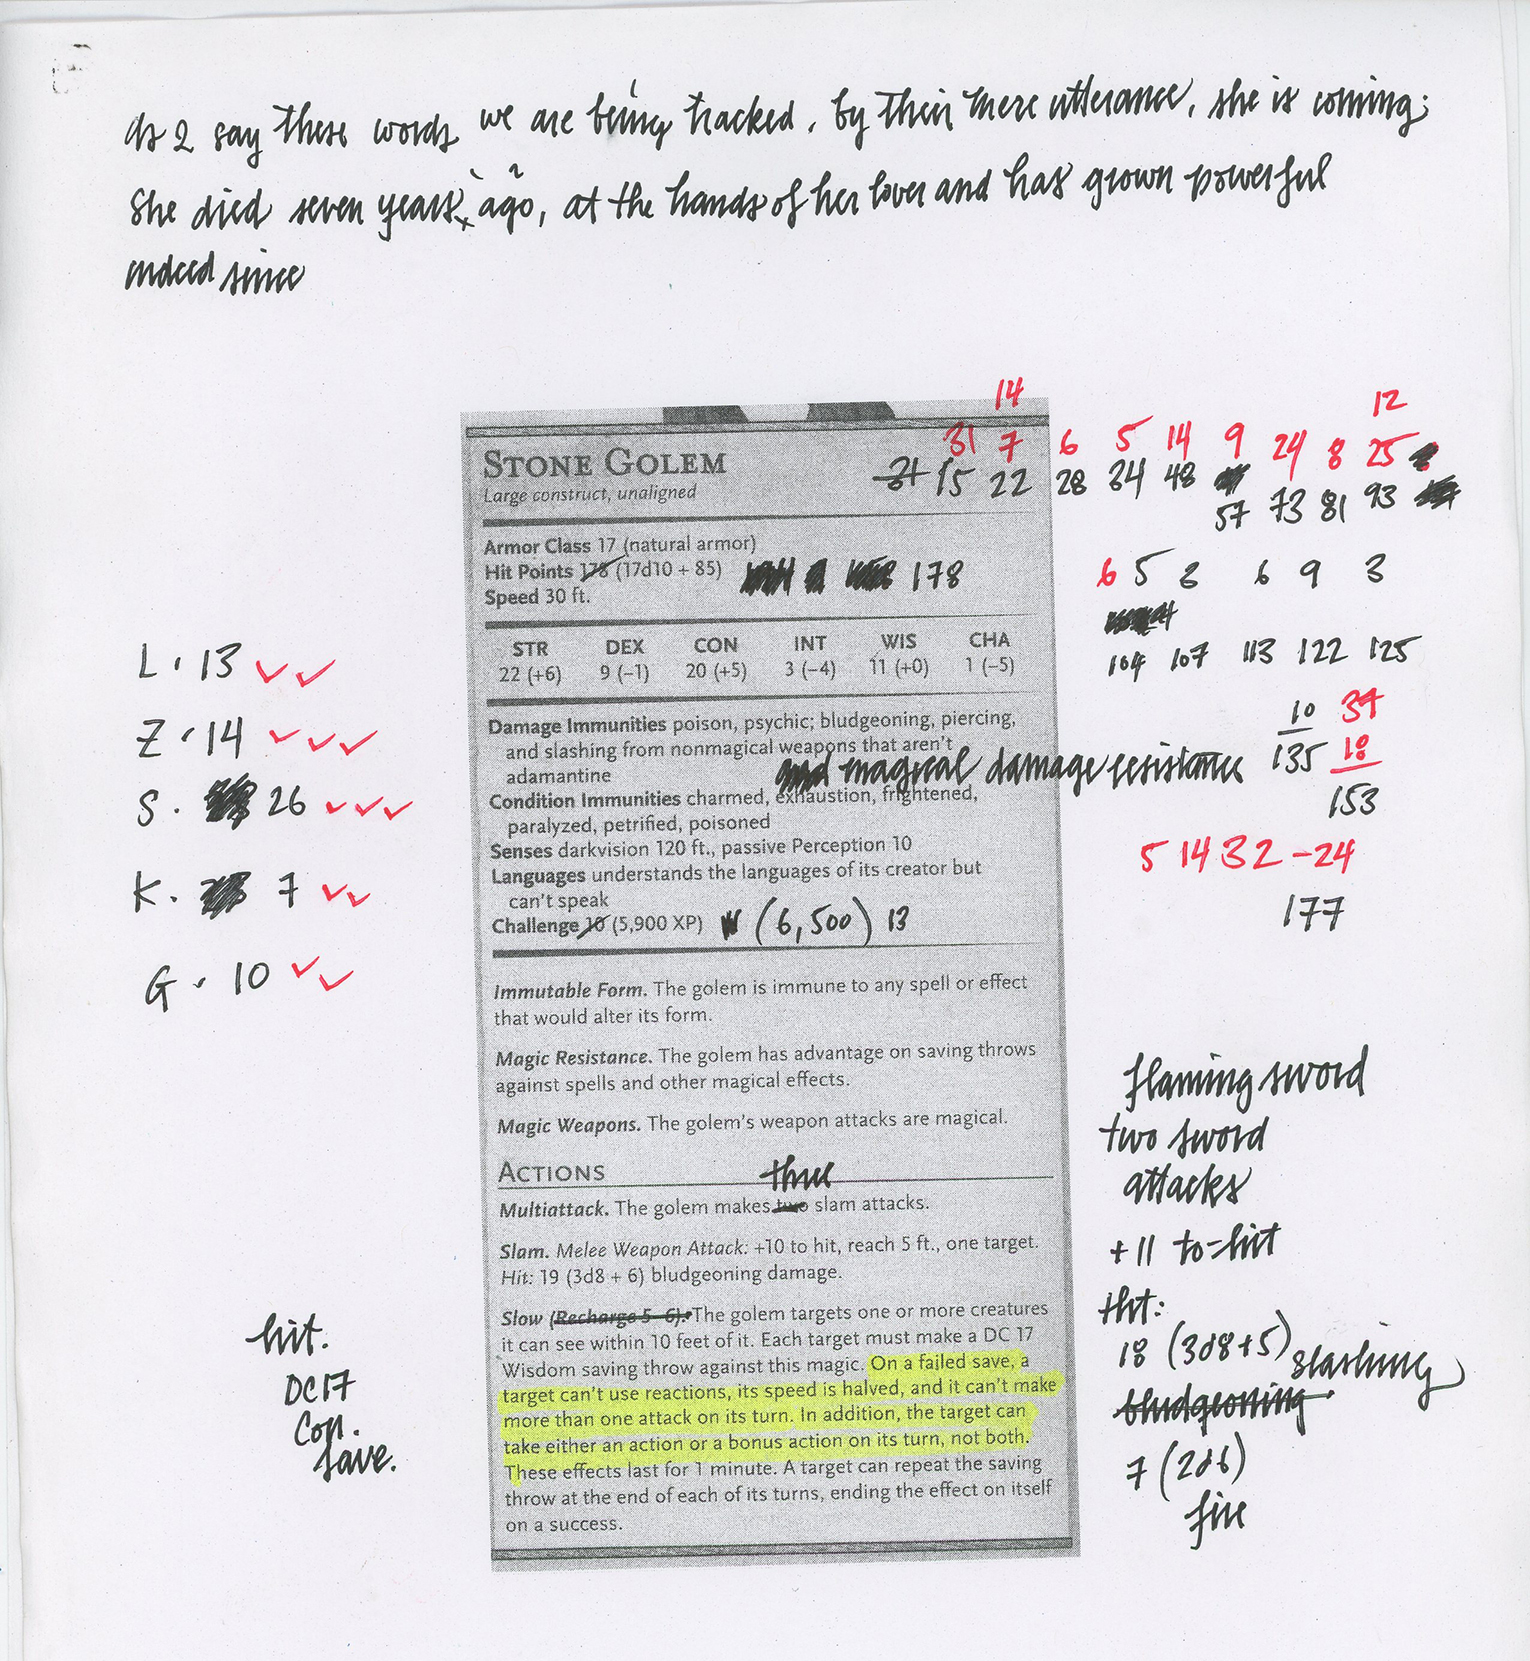 As I say these words we are being tracked, by their mere utterance, she is coming;
She died seven years ago, at the hands of her lover and has grown powerful
indeed since
14
12
31 7 6 5 14 9 24 8 25
31 15 22 28 34 48
57 73 81 93
STONE GOLEM
Large construct, unaligned
Armor Class 17 (natural armor)
Hit Points 178 (17d10 + 85) 178
Speed 30 ft.
6 5 8 6 9 3
104 107 113 122 125
STR DEX CON INT WIS CHA
22 (+6) 9 (−1) 20 (+5) 3 (−4) 11 (+0) 1 (−5)
L. 13
Z. 14
S. 26
K. 7
G. 10
Damage Immunities poison, psychic; bludgeoning, piercing,
and slashing from nonmagical weapons that aren't
adamantine
and magical damage resistance
10
135
18
153
5 14 32 -24
177
Condition Immunities charmed, exhaustion, frightened,
paralyzed, petrified, poisoned
Senses darkvision 120 ft., passive Perception 10
Languages understands the languages of its creator but
can't speak
Challenge 10 (5,900 XP) (6,500) 13
Immutable Form. The golem is immune to any spell or effect
that would alter its form.
Magic Resistance. The golem has advantage on saving throws
against spells and other magical effects.
Magic Weapons. The golem's weapon attacks are magical.
ACTIONS
three
Multiattack. The golem makes two slam attacks.
Slam. Melee Weapon Attack: +10 to hit, reach 5 ft., one target.
Hit: 19 (3d8 + 6) bludgeoning damage.
Slow (Recharge 5–6). The golem targets one or more creatures
it can see within 10 feet of it. Each target must make a DC 17
Wisdom saving throw against this magic. On a failed save, a
target can't use reactions, its speed is halved, and it can't make
more than one attack on its turn. In addition, the target can
take either an action or a bonus action on its turn, not both.
These effects last for 1 minute. A target can repeat the saving
throw at the end of each of its turns, ending the effect on itself
on a success.
hit.
DC17
Con.
save.
flaming sword
two sword
attacks
+11 to-hit
18 (3d8+5) slashing
bludgeoning
7 (2d6)
fire